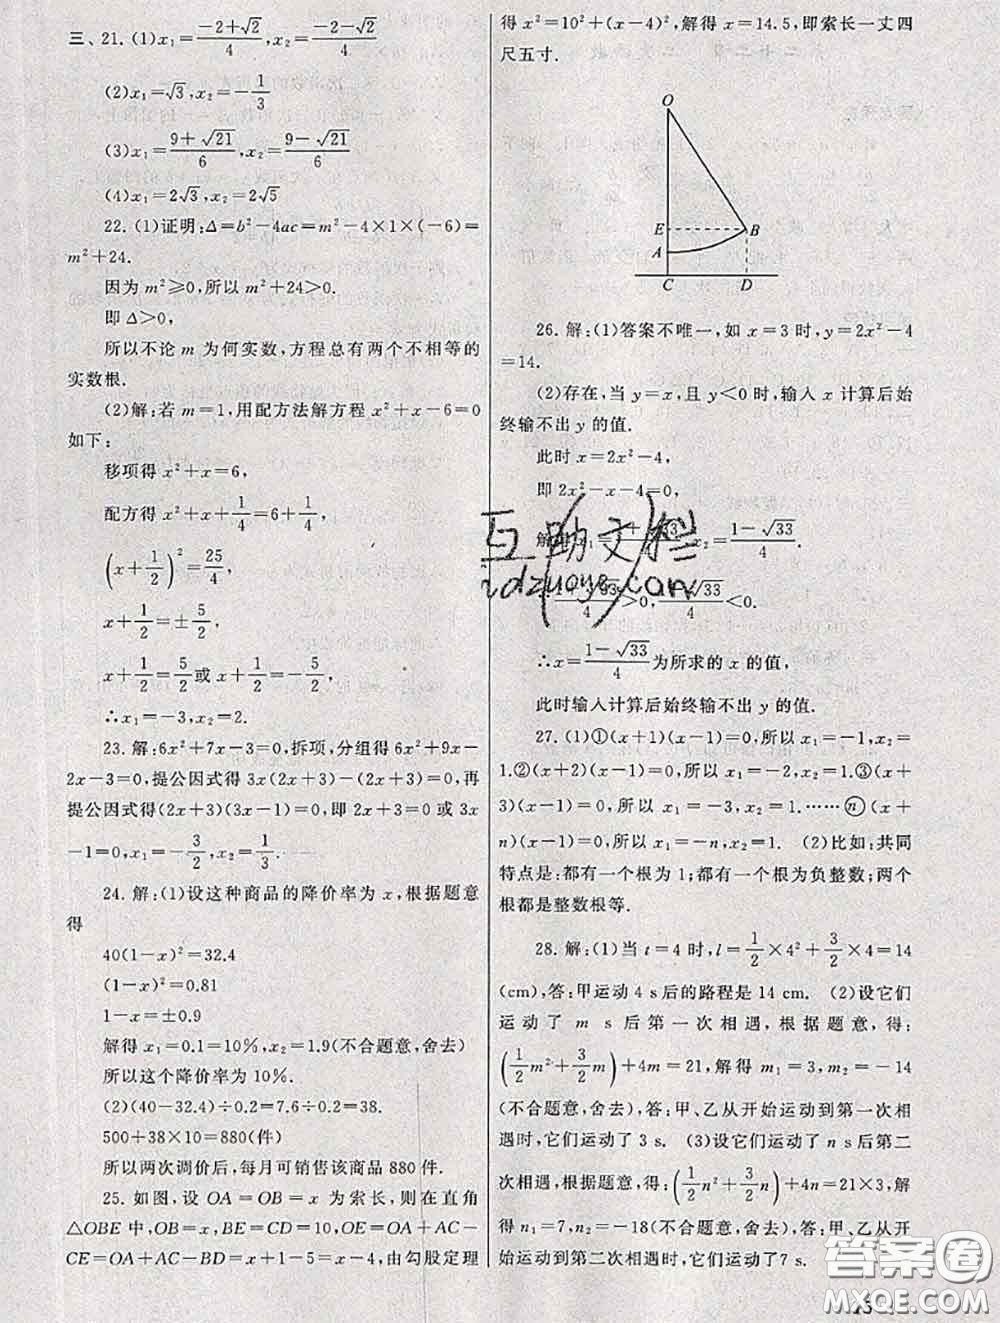 三、21. (1)x₁=(-2+√2)/4, x₂=(-2-√2)/4
(2)x₁=√3, x₂=-1/3
(3)x₁=(9+√21)/6, x₂=(9-√21)/6
(4)x₁=2√3, x₂=2√5
22. (1)证明:Δ=b²-4ac=m²-4×1×(-6)=
m²+24.
因为 m²≥0,所以 m²+24>0.
即 Δ>0,
所以不论 m 为何实数,方程总有两个不相等的
实数根.
(2)解:若 m=1,用配方法解方程 x²+x-6=0
如下:
移项得 x²+x=6,
配方得 x²+x+1/4=6+1/4,
(x+1/2)²=25/4,
x+1/2=±5/2,
x+1/2=5/2或 x+1/2=-5/2,
∴x₁=-3,x₂=2.
23. 解:6x²+7x-3=0,拆项,分组得 6x²+9x-
2x-3=0,提公因式得 3x(2x+3)-(2x+3)=0,再
提公因式得(2x+3)(3x-1)=0,即 2x+3=0 或 3x
-1=0,x₁=-3/2,x₂=1/3.
24. 解:(1)设这种商品的降价率为 x,根据题意
得
40(1-x)²=32.4
(1-x)²=0.81
1-x=±0.9
解得 x₁=0.1=10%,x₂=1.9(不合题意,舍去)
所以这个降价率为 10%.
(2)(40-32.4)÷0.2=7.6÷0.2=38.
500+38×10=880(件)
所以两次调价后,每月可销售该商品 880 件.
25. 如图,设 OA=OB=x 为索长,则在直角
△OBE 中,OB=x,BE=CD=10,OE=OA+AC-
CE=OA+AC-BD=x+1-5=x-4,由勾股定理
得 x²=10²+(x-4)²,解得 x=14.5,即索长一丈四
尺五寸.
O
E B
A
C D
26. 解:(1)答案不唯一,如 x=3 时,y=2x²-4
=14.
(2)存在,当 y=x,且 y<0 时,输入 x 计算后始
终输不出 y 的值.
此时 x=2x²-4,
即 2x²-x-4=0,
x₂=(1-√33)/4.
>0,(1-√33)/4<0.
∴x=(1-√33)/4为所求的 x 的值,
此时输入计算后始终输不出 y 的值.
27. (1)①(x+1)(x-1)=0,所以 x₁=-1,x₂=
1.②(x+2)(x-1)=0,所以 x₁=-2,x₂=1.③(x+
3)(x-1)=0,所以 x₁=-3,x₂=1.……ⓝ(x+
n)(x-1)=0,所以 x₁=-n,x₂=1. (2)比如:共同
特点是:都有一个根为 1;都有一个根为负整数;两个
根都是整数根等.
28. 解:(1)当 t=4 时,l=1/2×4²+3/2×4=14
(cm),答:甲运动 4 s后的路程是 14 cm. (2)设它们
运动了 m s 后第一次相遇,根据题意,得:
(1/2m²+3/2m)+4m=21,解得 m₁=3,m₂=-14
(不合题意,舍去),答:甲、乙从开始运动到第一次相
遇时,它们运动了 3 s. (3)设它们运动了 n s后第二
次相遇,根据题意,得:(1/2n²+3/2n)+4n=21×3,解
得 n₁=7,n₂=-18(不合题意,舍去),答:甲、乙从开
始运动到第二次相遇时,它们运动了7 s.
互助文栏
答案圈
MXQE